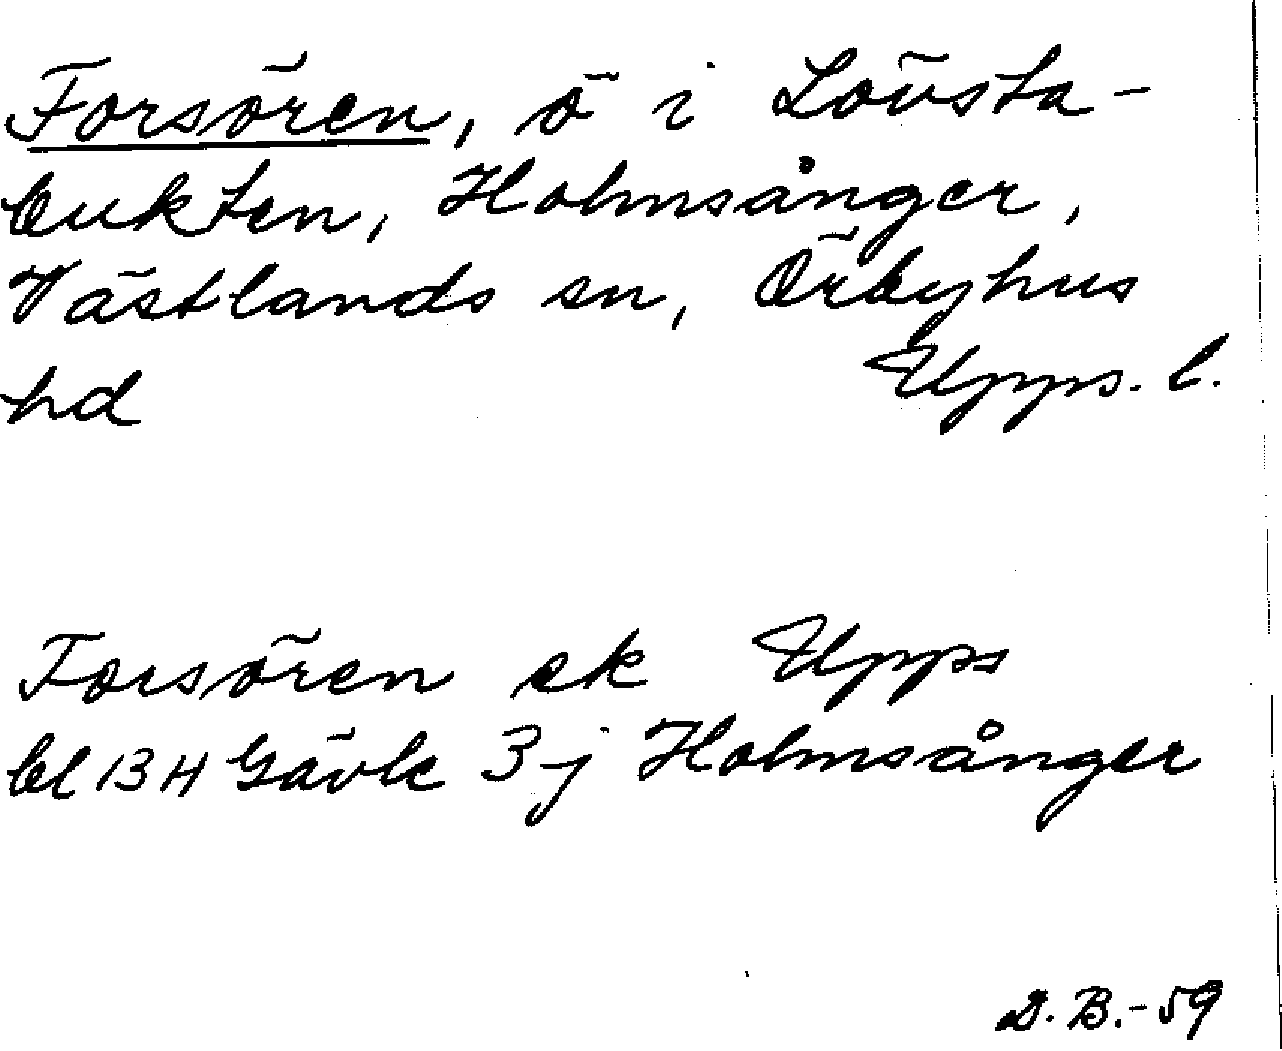 Forsören, ö i Lövsta-
bukten, Holmsånger,
Västlands sn, Örbyhus
hd Upps. l.
Forsören ek Upps
bl 13 H Gävle 3j Holmsånger
D.B.-59